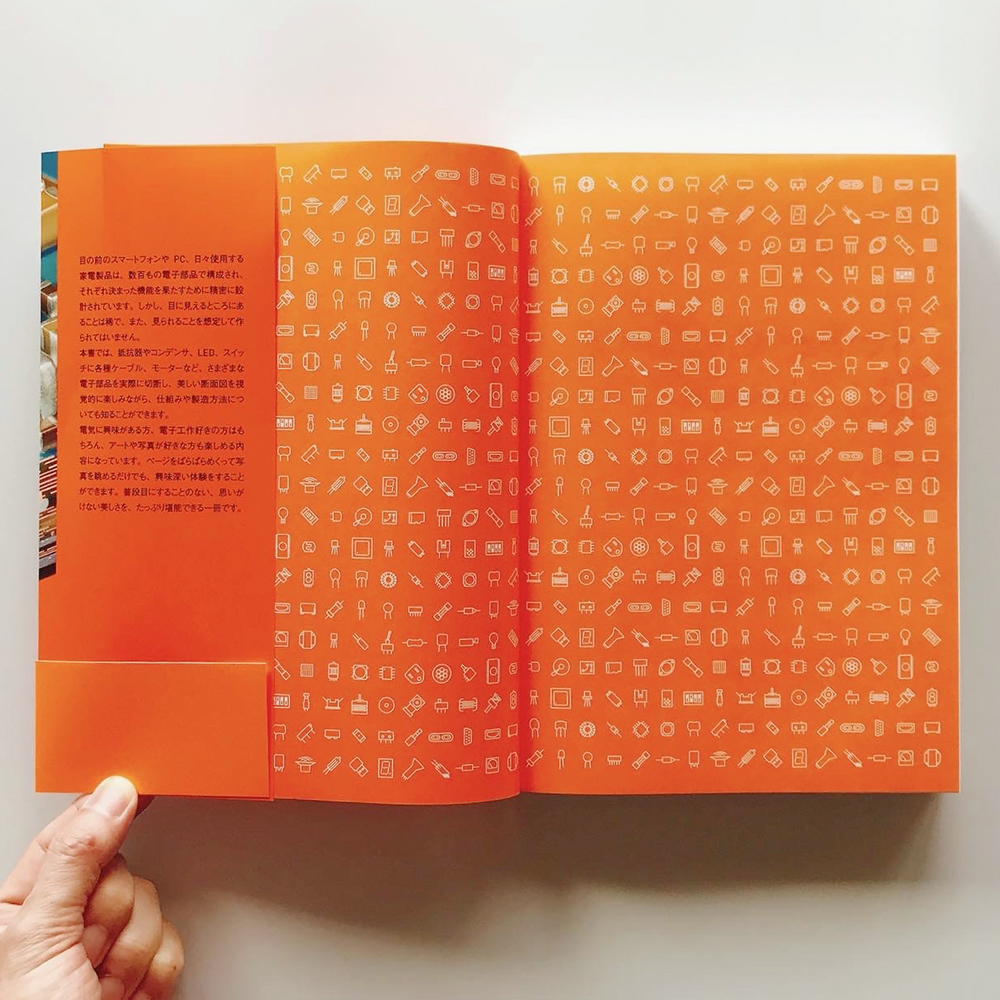 目の前のスマートフォンや PC、日々使用する
家電製品は、数百もの電子部品で構成され、
それぞれ決まった機能を果たすために精密に設
計されています。しかし、目に見えるところにあ
ることは稀で、また、見られることを想定して作
られてはいません。
本書では、抵抗器やコンデンサ、LED、スイッ
チに各種ケーブル、モーターなど、さまざまな
電子部品を実際に切断し、美しい断面図を視
覚的に楽しみながら、仕組みや製造方法につ
いても知ることができます。
電気に興味がある方、電子工作好きの方はも
ちろん、アートや写真が好きな方も楽しめる内
容になっています。ページをぱらぱらめくって写
真を眺めるだけでも、興味深い体験をすること
ができます。普段目にすることのない、思いが
けない美しさを、たっぷり堪能できる一冊です。